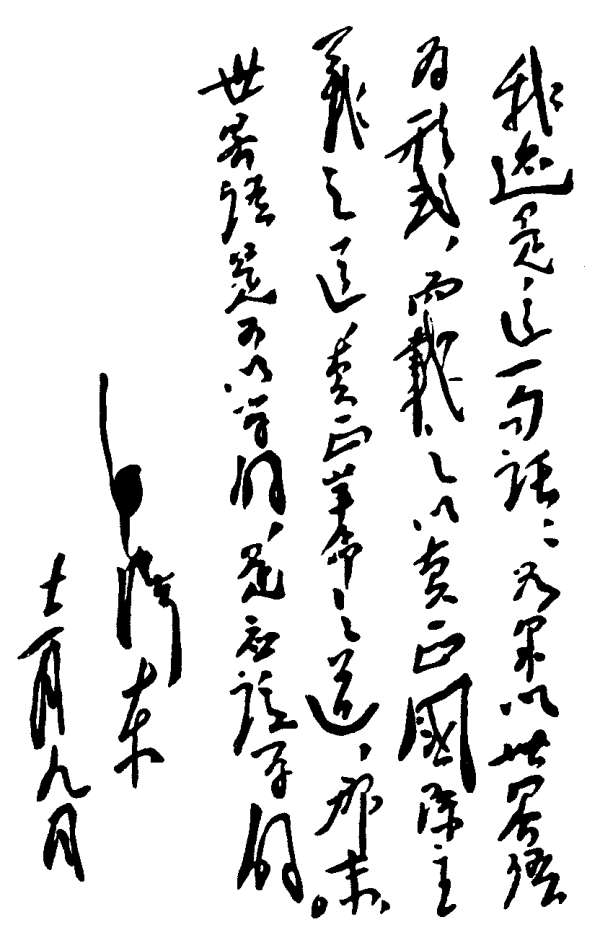 我还是这一句话：如果以世界语
为形式，而载之以真正國际主
義之道，真正革命之道，那末，
世界语是可以学的，是应该学的。
毛澤东
十二月九日